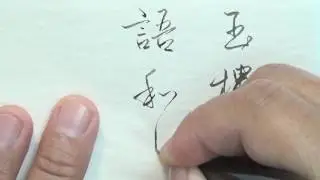 玉樓
語和